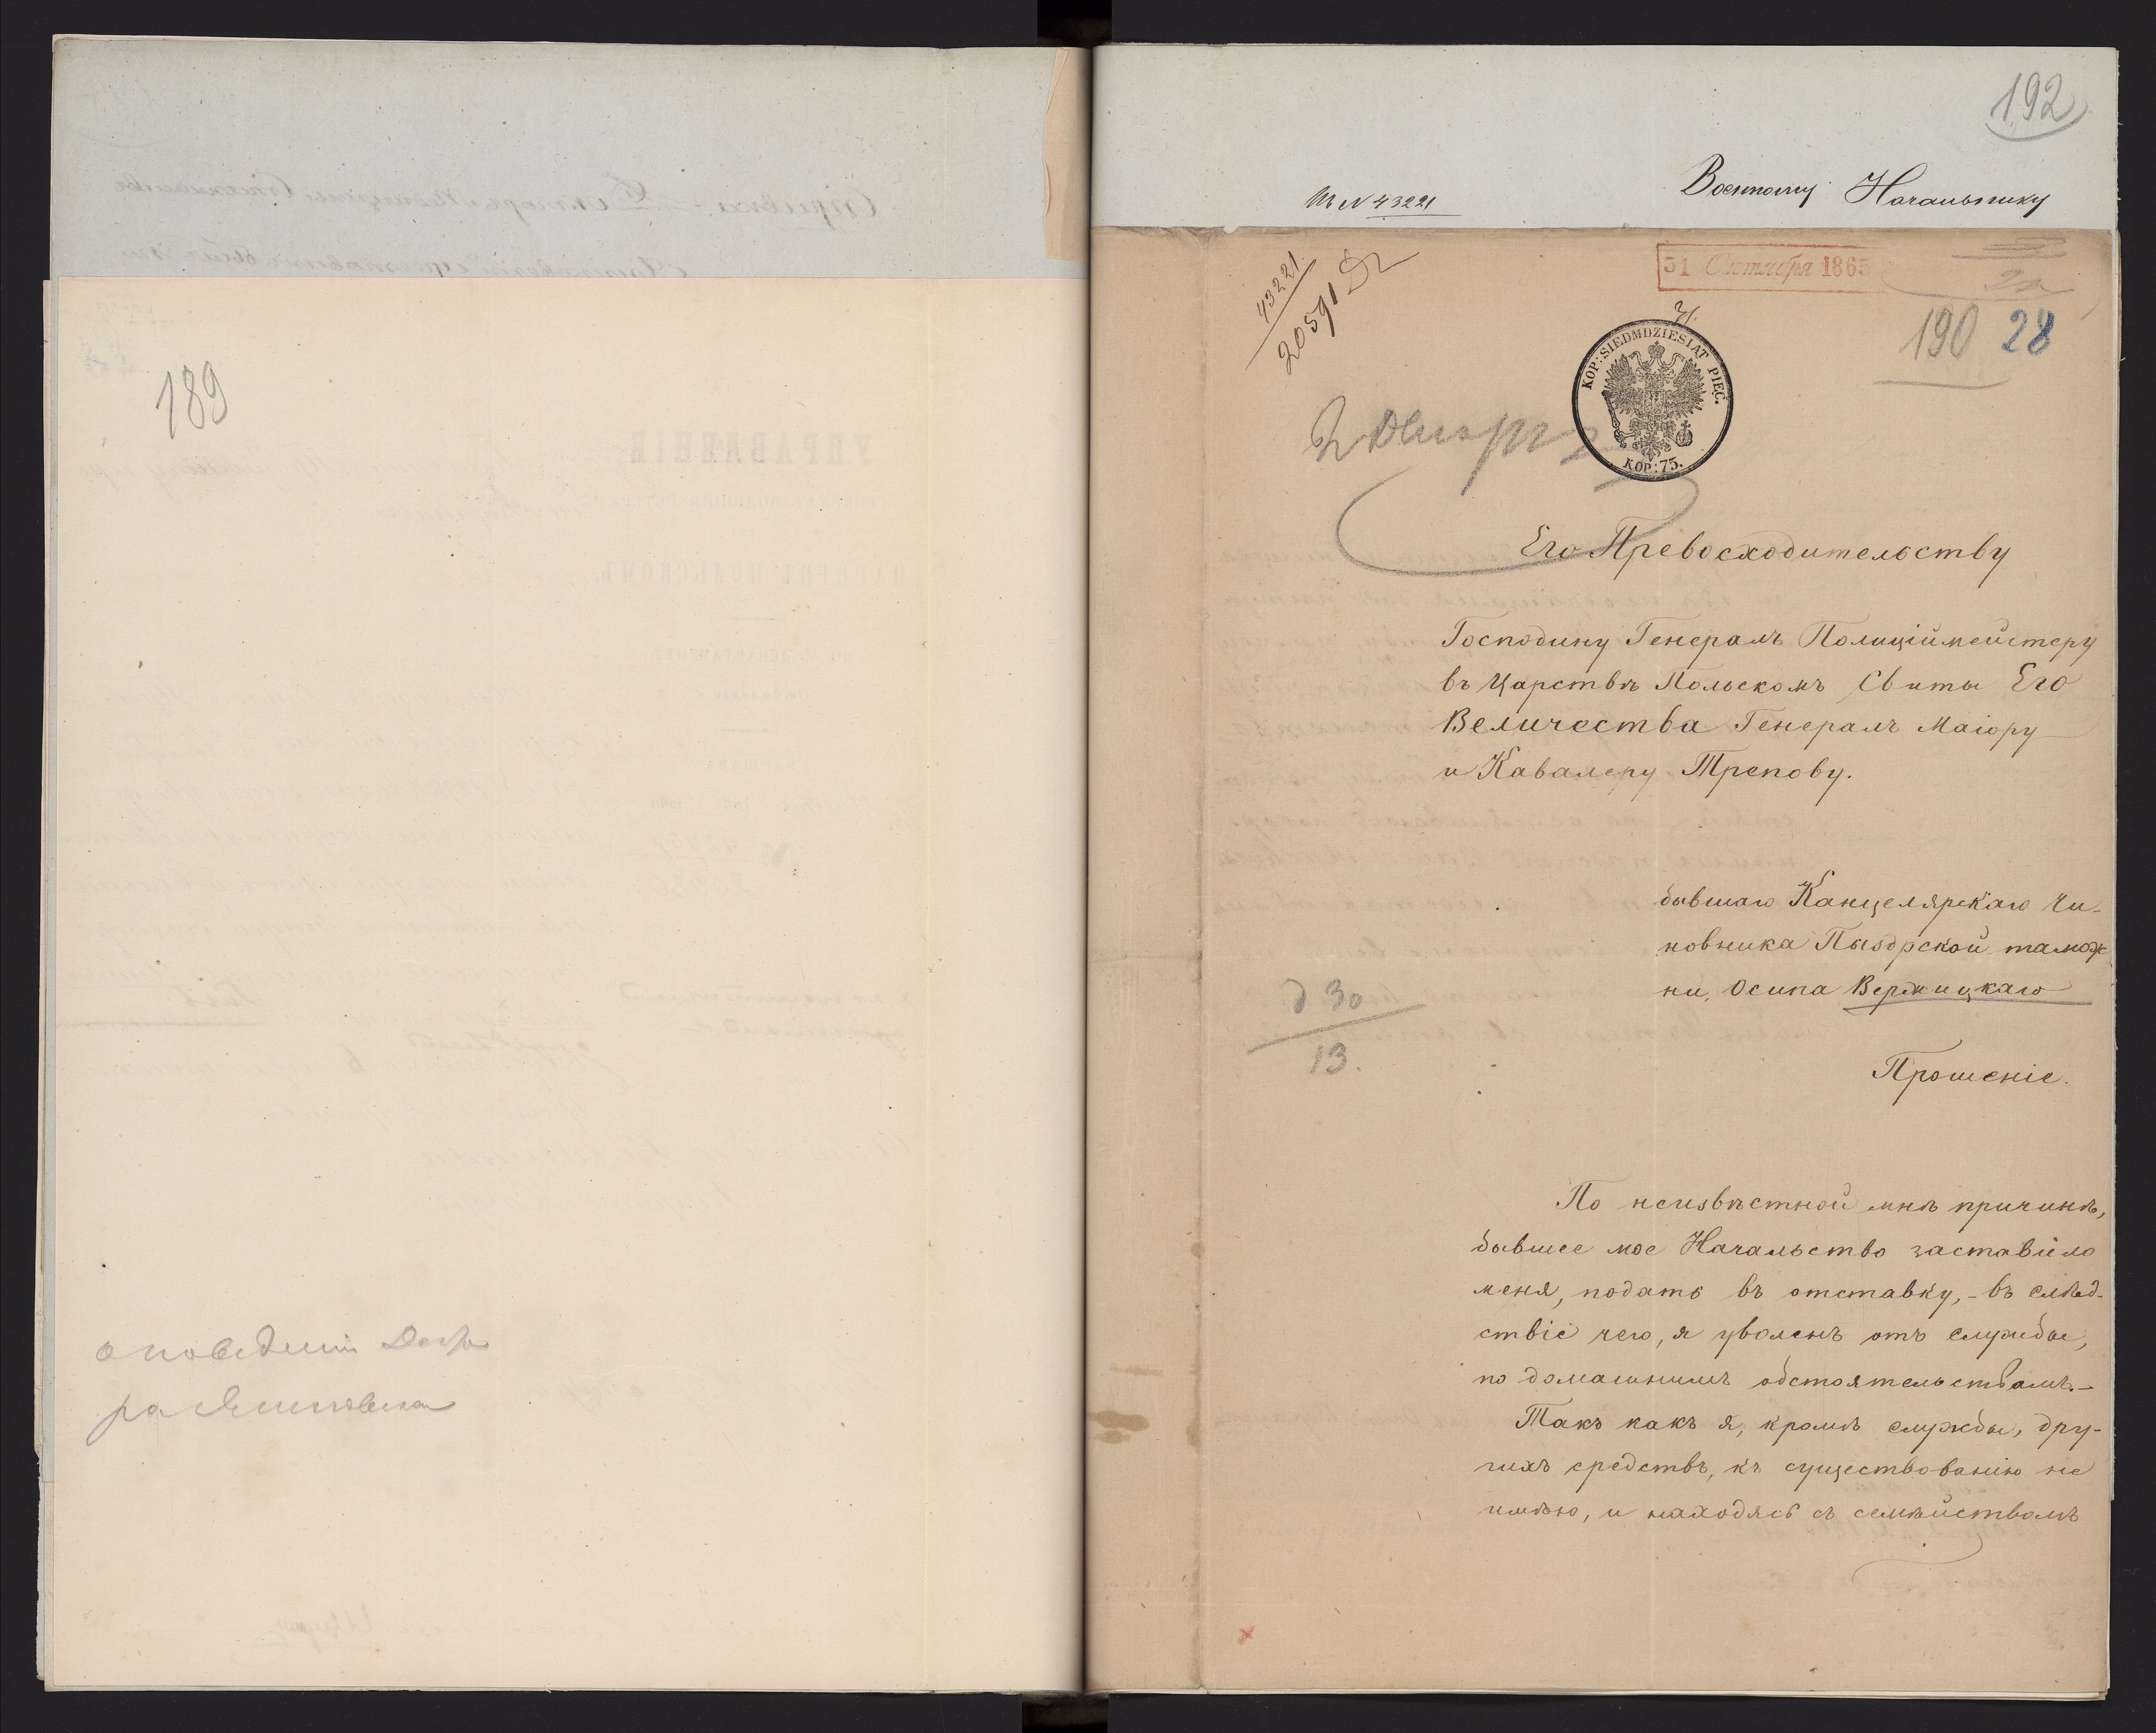 189
о поведеніи
192
Военному Начальнику
къ № 43221
43221
20591
31 Октября 1865
190 28
KOP: SIEDMDZIESIAT PIĘC.
KOP: 75.
Его Превосходительству
Господину Генералъ Полиціймейстеру
въ Царствѣ Польскомъ Свиты Его
Величества Генералъ Маіору
и Кавалеру Трепову.
бывшаго Канцелярскаго Чи-
новника Пыздрской тамож
ни, Осипа Вержицкаго
30
13.
Прошеніе.
По неизвѣстной мнѣ причинѣ,
бывшее мое Начальство заставило
меня, подать въ отставку, - въ слѣд-
ствіе чего, я уволенъ отъ службы,
по домашнимъ обстоятельствамъ. -
Такъ какъ я, кромѣ службы, дру-
гихъ средствъ, къ существованію не
имѣю, и находясь съ семѣйствомъ